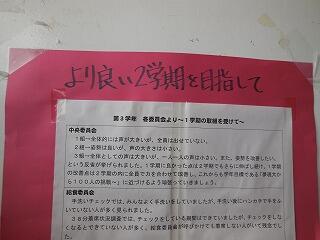 より良い2学期を目指して
第3学年　各委員会より～1学期の取組を受けて～
中央委員会
1組→全体的には声が大きいが、全員は出せていない。
2組→姿勢は良いが、声の大きさは小さい。
3組→全体としての声は大きいが、一人一人の声は小さい。また、姿勢を改善したい。
という反省が挙げられました。1学期に良かった点は2学期でもさらに伸ばし続け、1学期
の改善点は2学期の内に全員で力を合わせて改善し、これからも学年目標である
から100人の挑戦～」に近づけるよう頑張っていきましょう。
給食委員会
手洗いチェックでは、みんなよく手洗いをしていましたが、手洗い後にハンカチで手をふ
いていない人が多く見られました。
38分着席状況調査では、チェックをしている期間はできていましたが、チェックをし
なくなると着席できていない人が多く、給食委員が呼びかけても着席しない人がいて残念で
した。